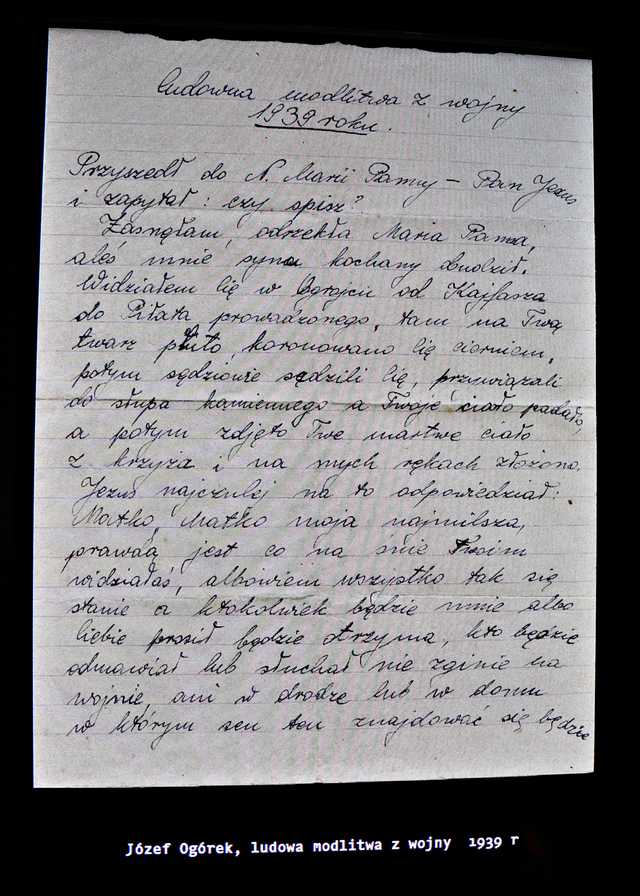 ludowna modlitwa z wojny
1939 roku.
Przyszedł do N. Marii Panny – Pan Jezus
i zapytał: czy śpisz?
Zasnęłam, odrzekła Maria Panna,
aleś mnie synu kochany obudził.
Widziałem Cię w Ogrojcu od Kajfasza
do Piłata prowadzonego, tam na Twą
twarz pluto, koronowano Cię cierniem,
potym sędziowie sędzili Cię, przywiązali
do słupa kamiennego a Twoje ciało padało,
a potym zdjęto Twe martwe ciało
z krzyża i na mych rękach złożono.
Jezus najczulej na to odpowiedział:
Matko, Matko moja najmilsza,
prawdą jest co na śnie Twoim
widziałaś, albowiem wszystko tak się
stanie a ktokolwiek będzie mnie albo
Ciebie prosił będzie otrzyma, kto będzie
odmawiał lub słuchał nie zginie na
wojnie, ani w drodze lub w domu
w którym sen ten znajdować się będzie
Józef Ogórek, ludowa modlitwa z wojny 1939 r